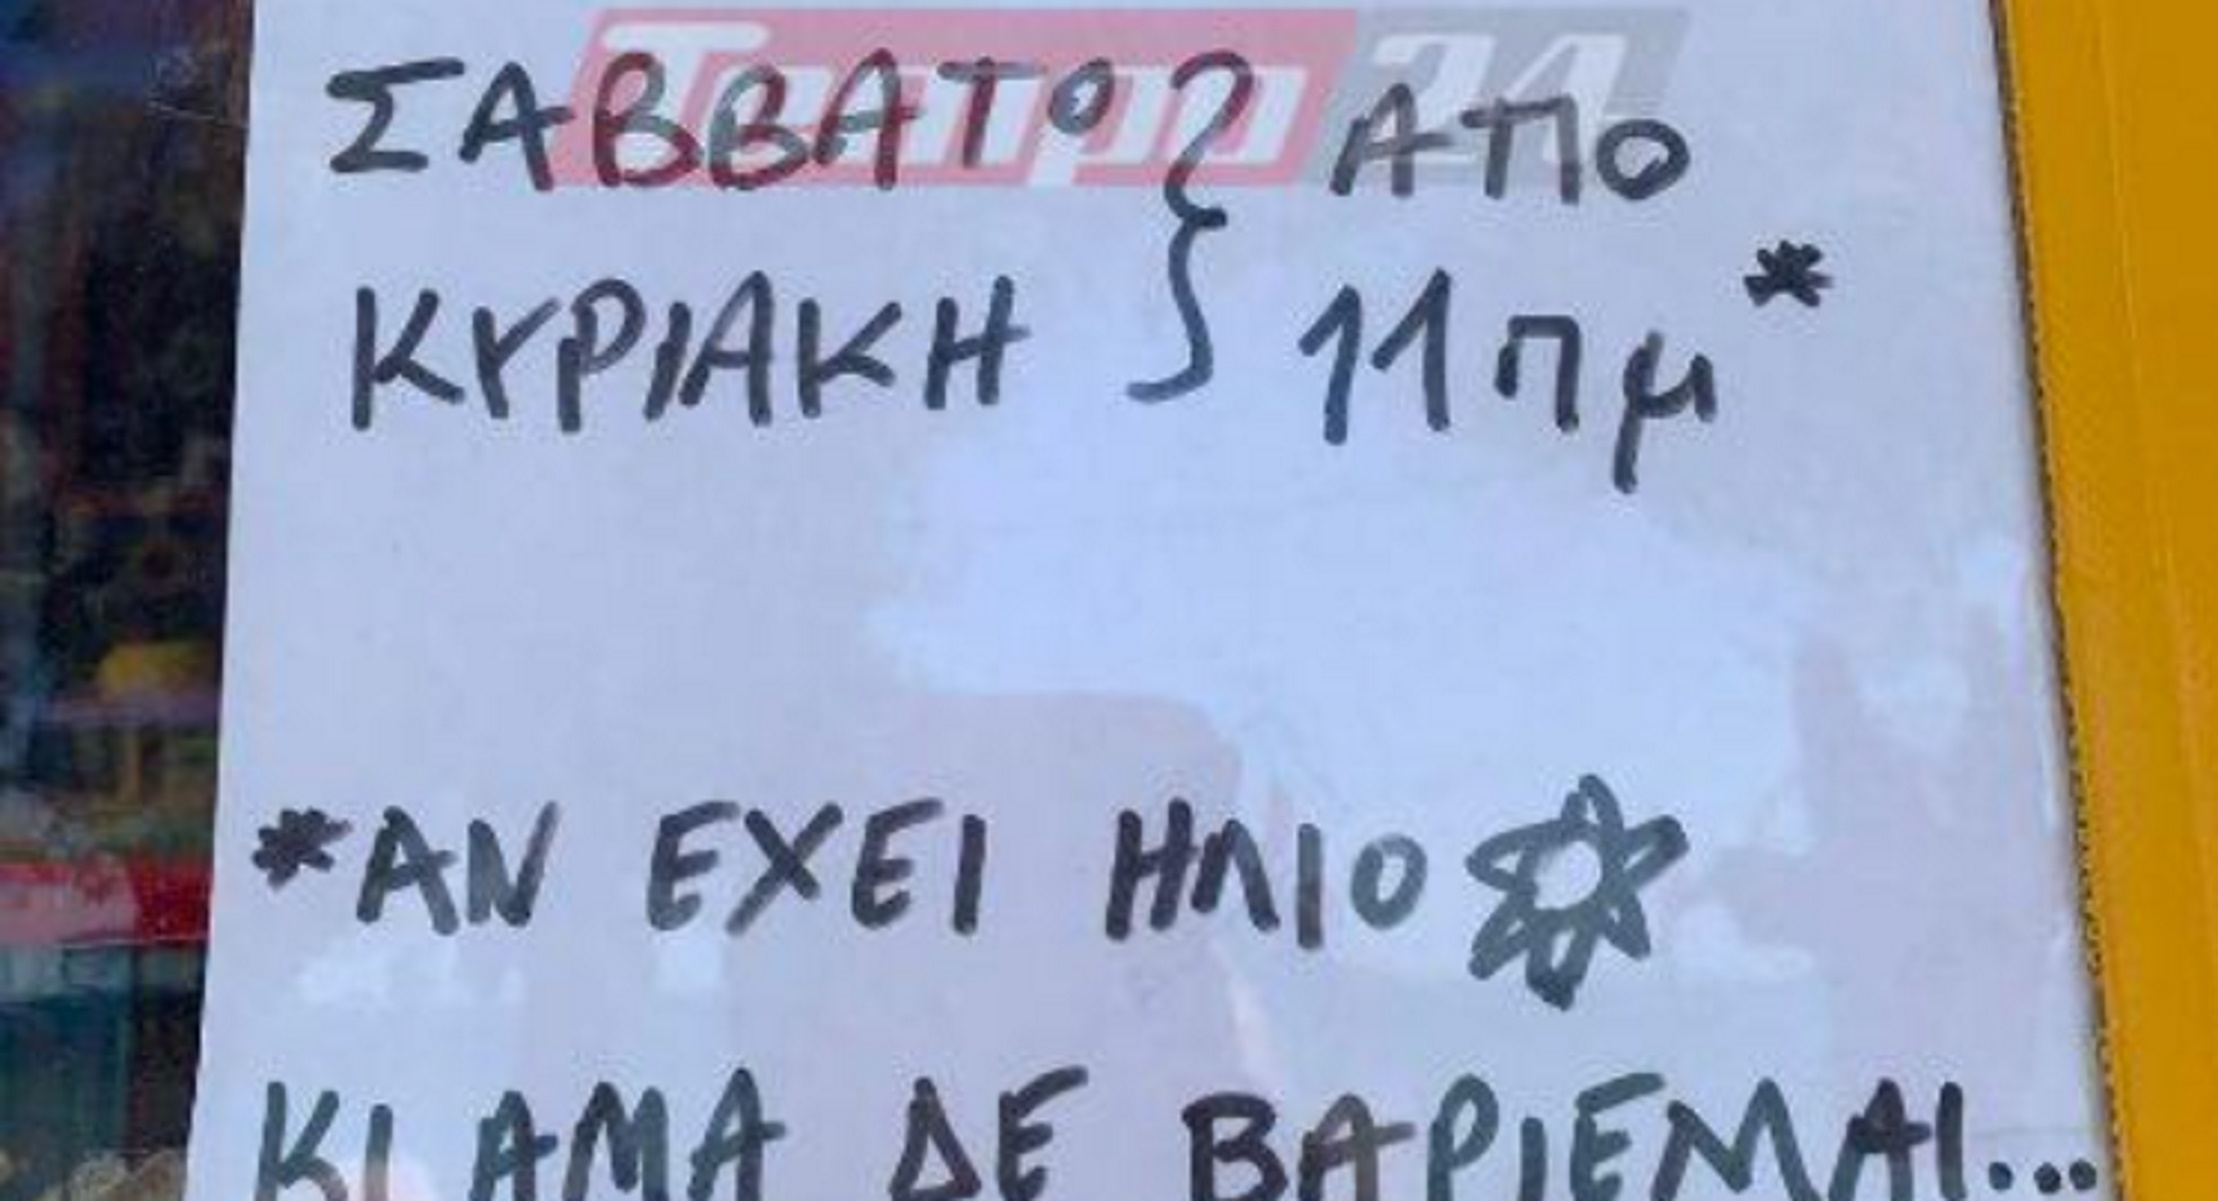 Tempo 24
ΣΑΒΒΑΤΟ } ΑΠΟ
ΚΥΡΙΑΚΗ 11 πμ*
*ΑΝ ΕΧΕΙ ΗΛΙΟ
ΚΙ ΑΜΑ ΔΕ ΒΑΡΙΕΜΑΙ...